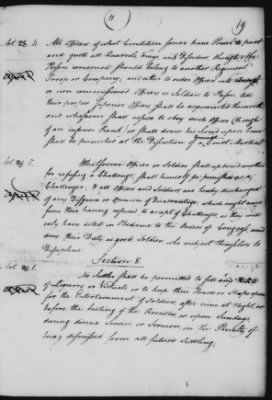 (11)
19
Art. 4. All Officers of what Condition soever have Power to part
and quell all Quarrels Frays and Disorders, though the
Persons concerned should belong to another Regiment
Troop or Company, and either to order Officers into
or non commissioned Officers or Soldiers to Prison, till
their proper Superior Officers shall be acquainted therewith
and whosoever shall refuse to obey such Officer (though
of an inferior Rank) or shall draw his Sword upon him
shall be punished at the Discretion of a General Court Martial
Art. 5. Whatsoever Officer or Soldier shall upbraid another
for refusing a Challenge, shall himself be punished as a
Challenger, & all Officers and Soldiers are hereby discharged
of any Disgrace or Opinion of Disadvantage, which might arise
from their having refused to accept of Challenges, as they will
only have acted in Obedience to the Orders of Congress and
done their Duty as good Soldiers who subject themselves to
Discipline
Section 8.
Art. 1. No Sutler shall be permitted to sell any Kind
of Liquors or Victuals, or to keep their Houses or Shops open
for the Entertainment of Soldiers, after nine at Night, or
before the beating of the Reveilles, or upon Sundays
during divine Service or Sermon on the Penalty of
being dismissed from all future Sutling.